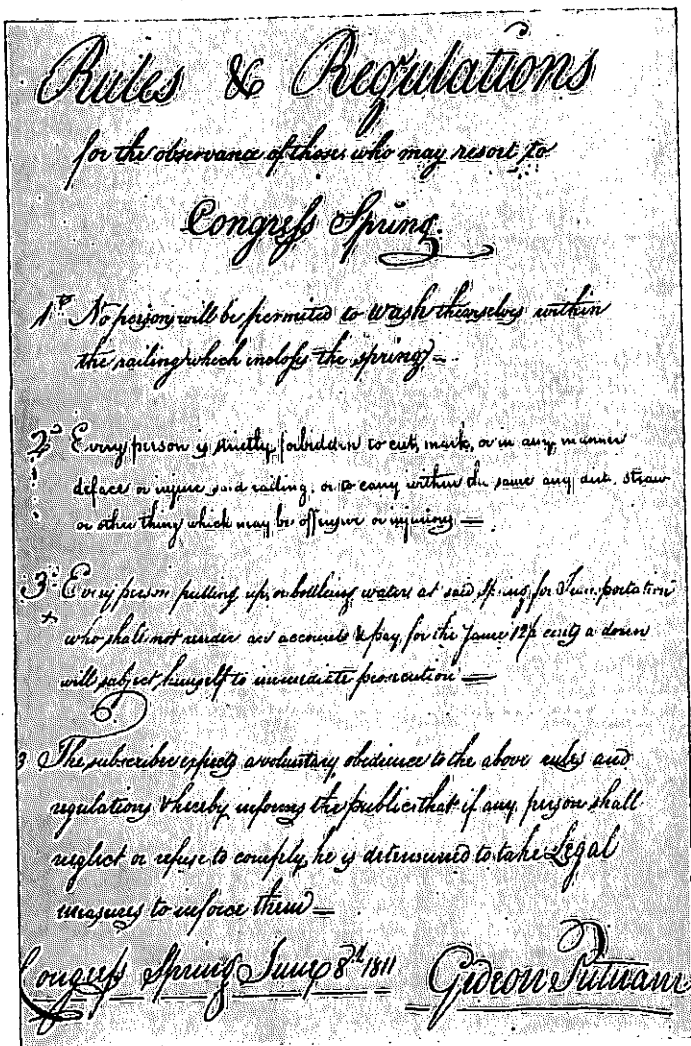 Rules & Regulations
for the observance of those who may resort to
Congress Spring.
1st No person will be permited to wash themselves within
the railing which incloses the spring =
2d Every person is strictly forbidden to cut, mark, or in any manner
deface or injure said railing, or to carry within the same any dirt, straw
or other thing which may be offensive or injurious =
3 Every person putting up, or bottleing water at said Spring for Transportation
who shall not render an account & pay, for the same 12½ cents a dozen
will subject himself to immediate prosecution =
The subscriber expects a voluntary obedience to the above rules and
regulations & hereby informs the public that if any person shall
neglect or refuse to comply, he is determined to take Legal
measures to inforce them =
Congress Spring June 8th 1811 Gideon Putnam